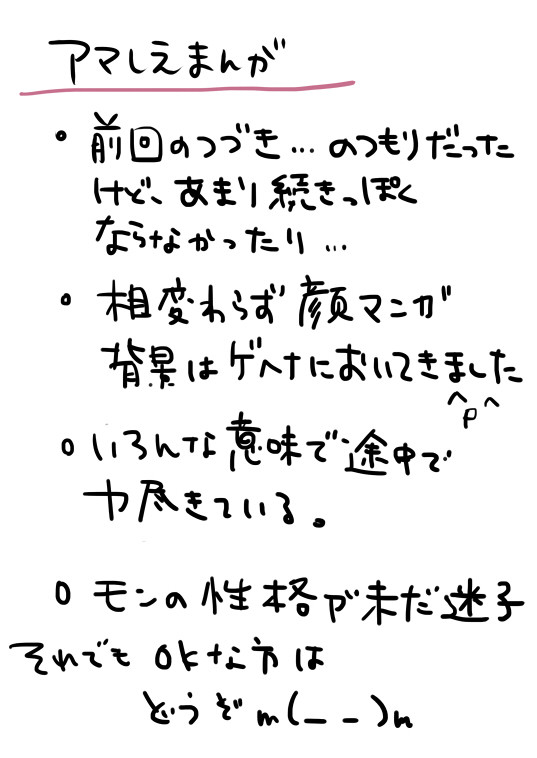 アマしえまんが
• 前回のつづき…のつもりだった
けど、あまり続きっぽく
ならなかったり…
• 相変わらず顔マンガ
背景はゲヘナにおいてきました
^p^
• いろんな意味で途中で
力尽きている。
• モンの性格が未だ迷子
それでもOKな方は
どうぞm(_ _)m